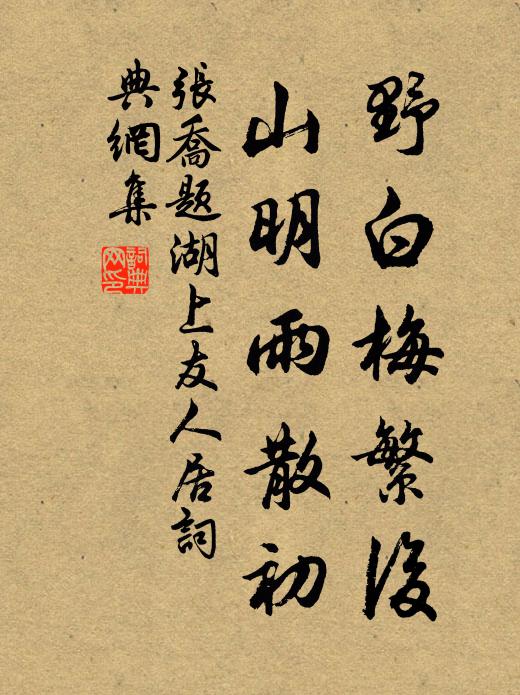 野白梅繁後
山明雨散初
張喬題湖上友人居詞
典網集
詞典
网印